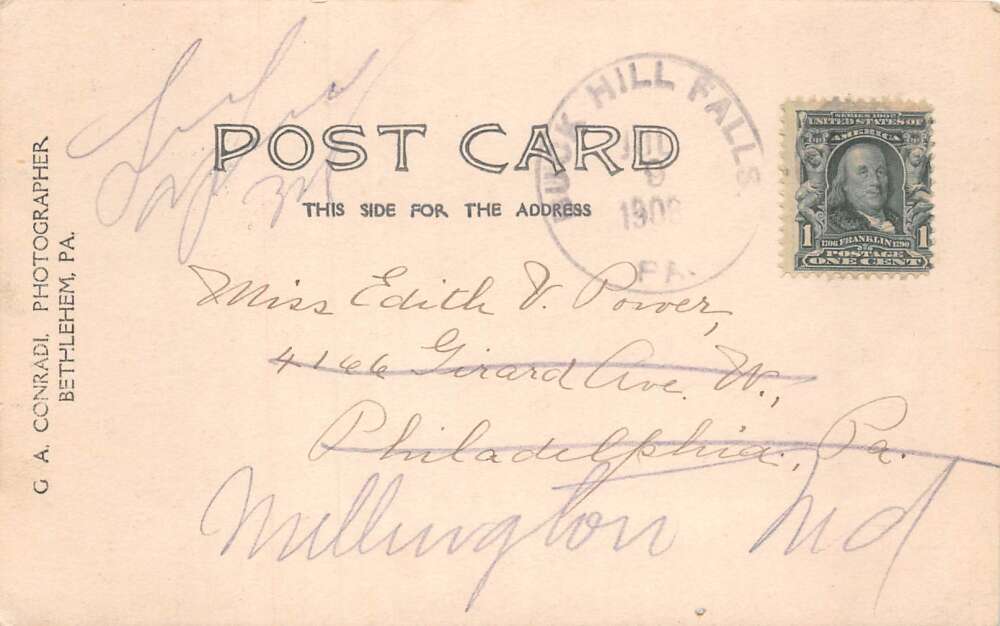 G. A. CONRADI, PHOTOGRAPHER
BETHLEHEM, PA.
POST CARD
THIS SIDE FOR THE ADDRESS
BUCK HILL FALLS
9
PA.
SERIES 1902
UNITED STATES OF
AMERICA
1 1
1706 FRANKLIN 1790
POSTAGE
ONE CENT
Miss Edith V. Power,
4166 Girard Ave. W.,
Philadelphia, Pa.
Millington Md